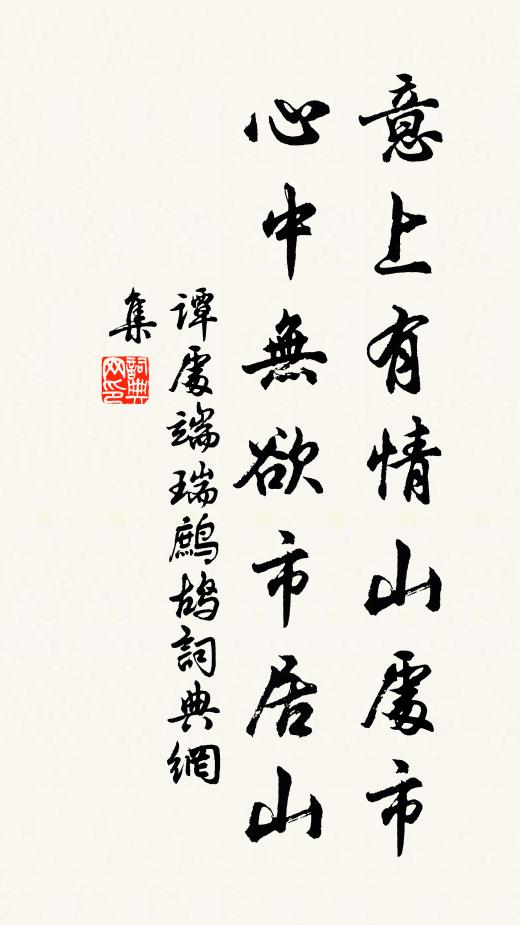 意上有情山處市
心中無欲市居山
譚處端瑞鷓鴣詞典網
集
詞典
网印